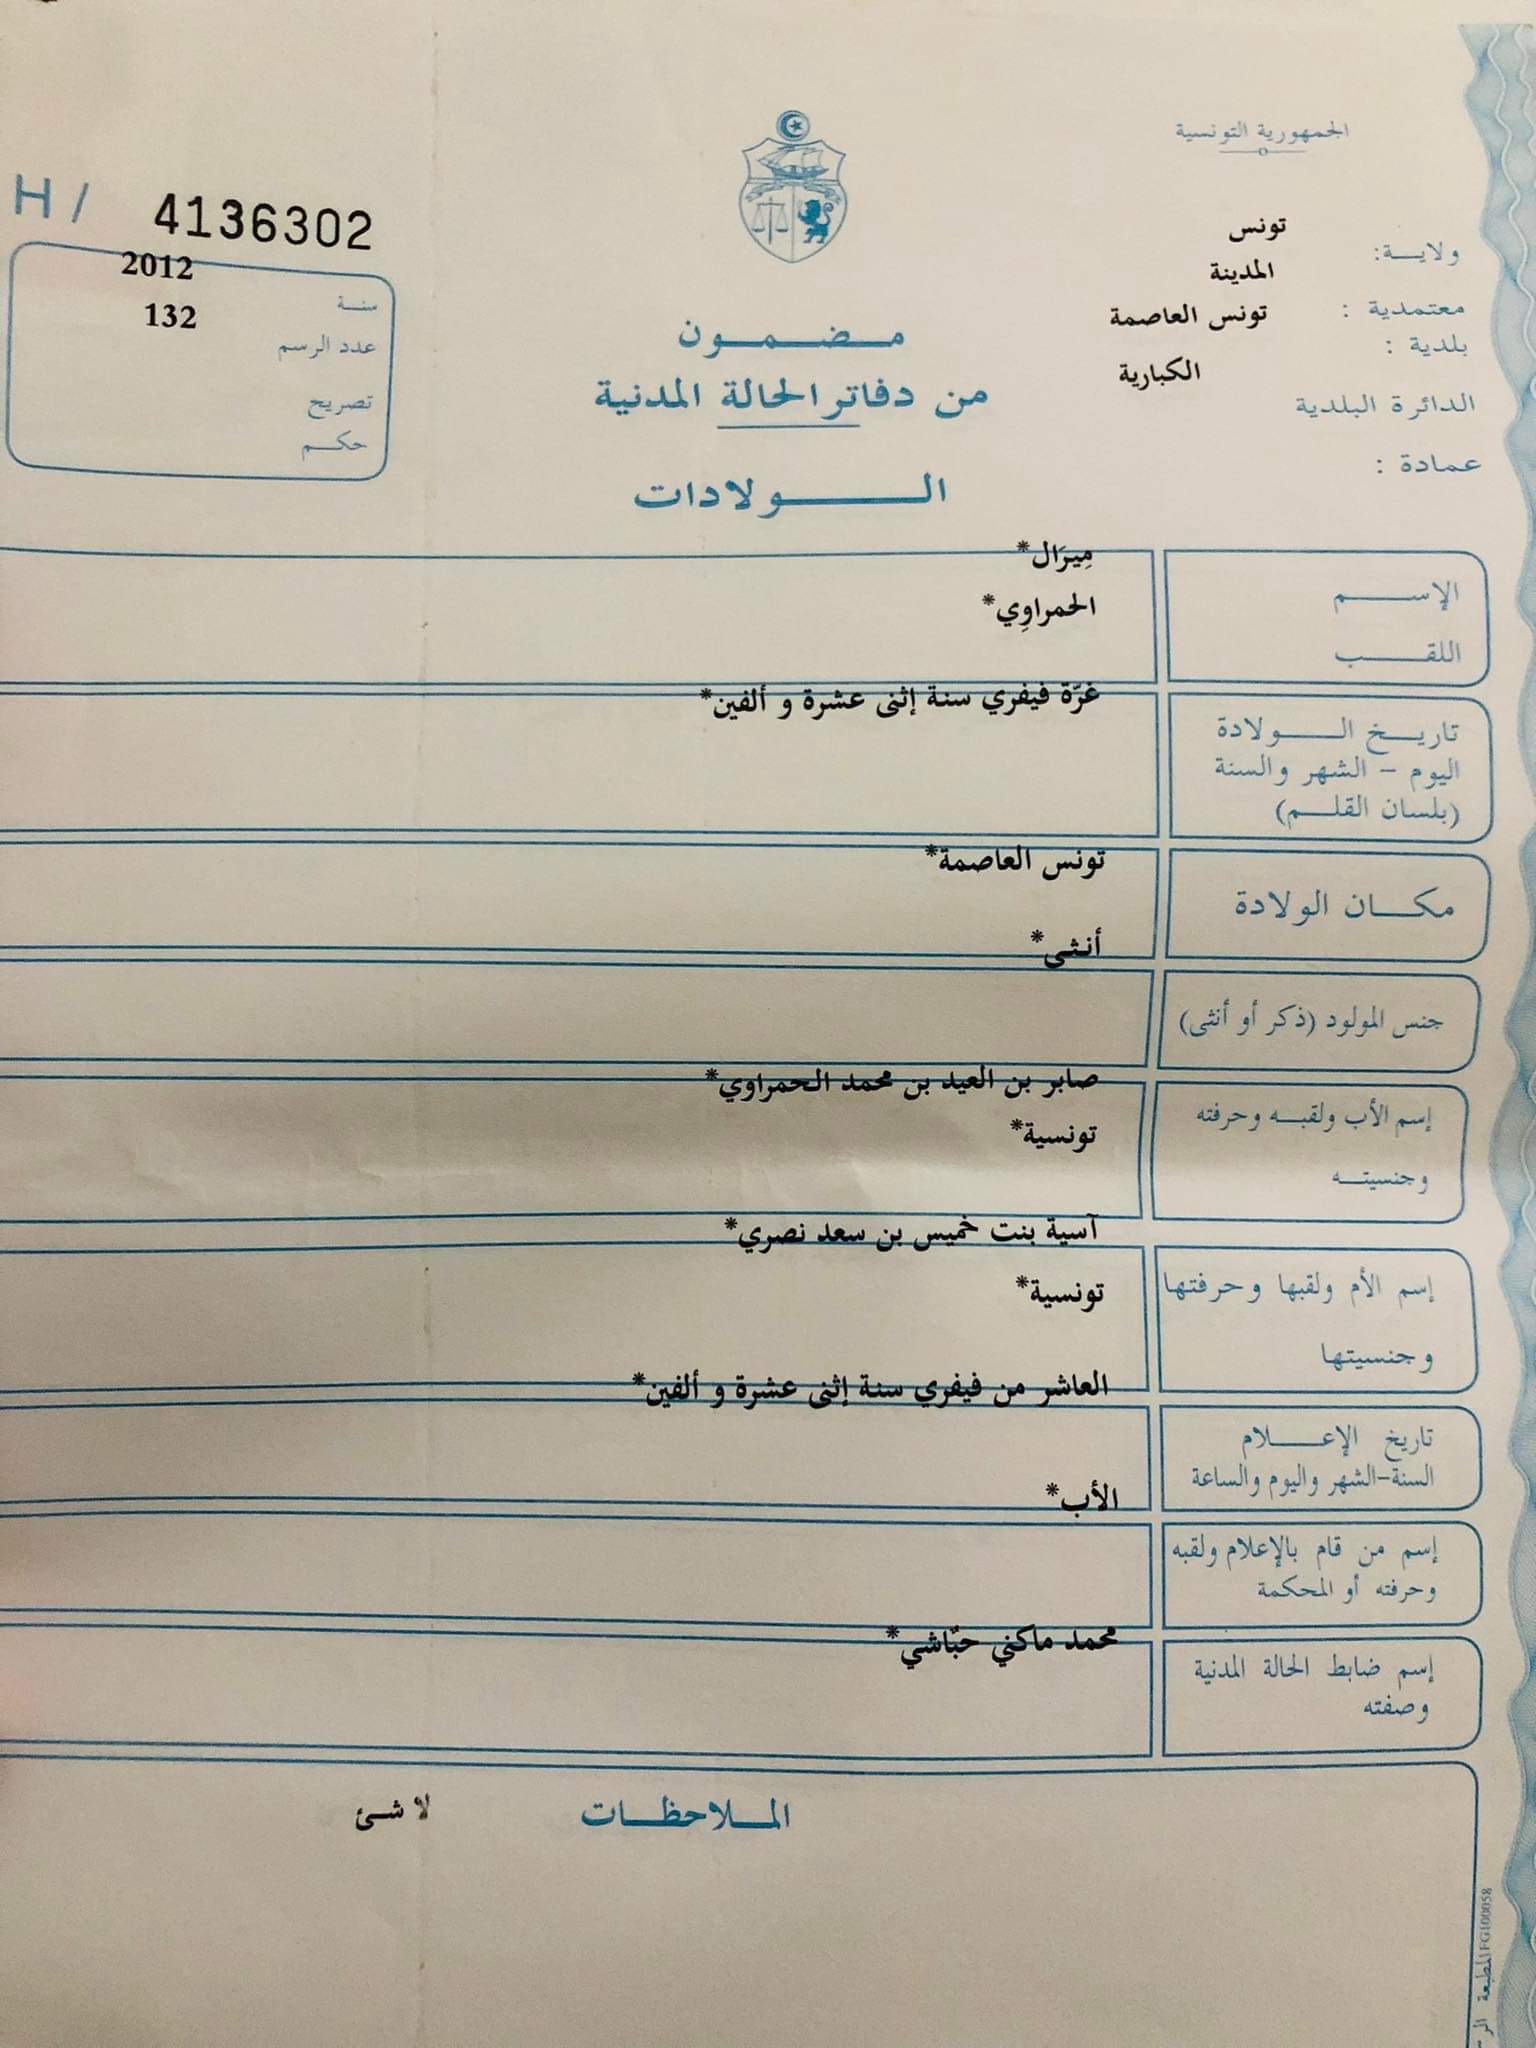 الجمهورية التونسية
ولايــة: تونس
معتمدية : المدينة
بلدية : تونس العاصمة
الدائرة البلدية الكبارية
عمادة :
H / 4136302
سنة 2012
عدد الرسم 132
تصريح
حكم
مضمون
من دفاتر الحالة المدنية
الولادات
الإسم ميِرَال*
اللقب الحمراوِي*
تاريخ الولادة
اليوم – الشهر والسنة
(بلسان القلم)
غرّة فيفري سنة إثنى عشرة و ألفين*
مكان الولادة تونس العاصمة*
جنس المولود (ذكر أو أنثى) أنثى*
إسم الأب ولقبه وحرفته صابر بن العيد بن محمد الحمراوي*
وجنسيته تونسية*
إسم الأم ولقبها وحرفتها آسية بنت خميس بن سعد نصري*
وجنسيتها تونسية*
تاريخ الإعلام
السنة-الشهر واليوم والساعة
العاشر من فيفري سنة إثنى عشرة و ألفين*
إسم من قام بالإعلام ولقبه
وحرفته أو المحكمة
الأب*
إسم ضابط الحالة المدنية
وصفته
محمد ماكني حبّاشي*
الملاحظات لا شئ
المطبعة FG100058